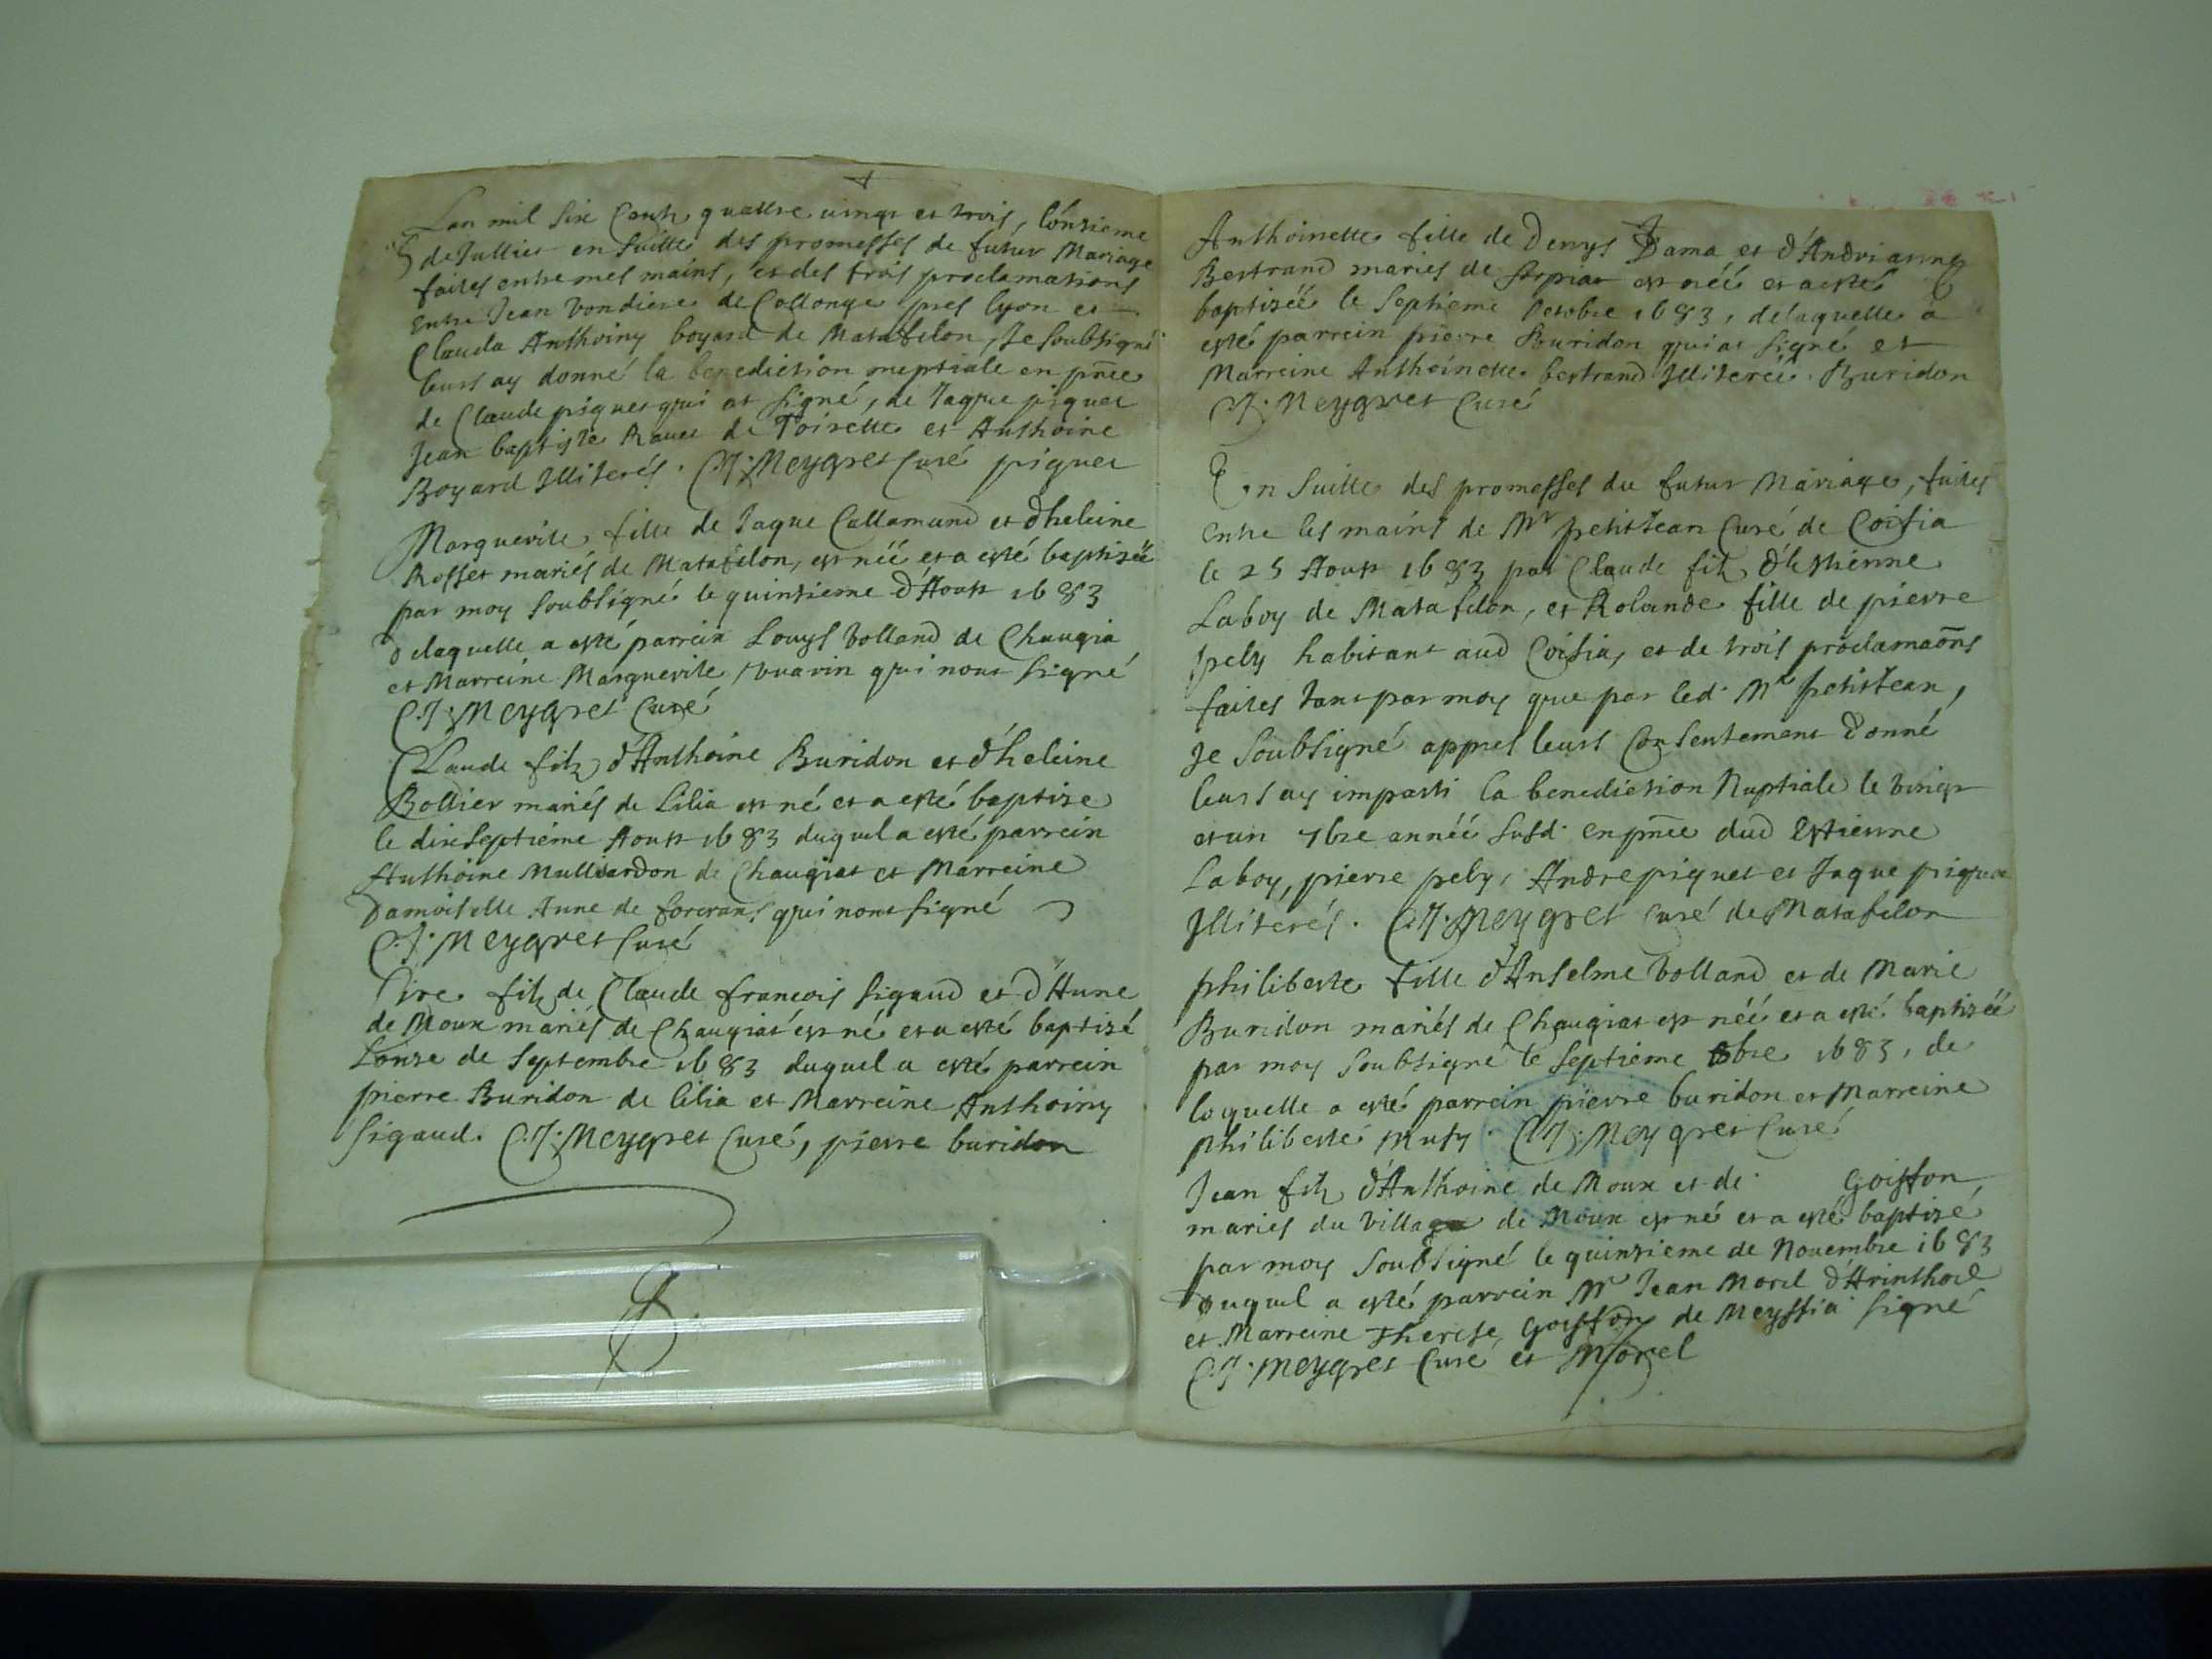 Lan mil six Cents quattre uingt et trois, l'onzieme
de Jullier en suitte des promesses de futur Mariage
faites entre mes mains, et des trois proclamations
Entre Jean Vondiere de Collonge pres lyon et
Clauda Anthoiny boyard de Matafelon, Je soubsigné
leurs ay donné la benediction nuptiale en pnce
de Claude piquet qui at signé, de Jaque piquet
Jean baptiste Rauet de Toirette et Anthoine
Boyard Illiterés. C.J. Meygret Curé piquet
Marguerite fille de Jaque Callamand et d'heleine
Rosset mariés de Matafelon, est néé et a esté baptiséé
par moy soubsigné le quinzieme d'Aoust 1683
delaquelle a esté parrein Louys Volland de Chaugia
et Marreine Marguerite Vuarin qui n'ont signé
C.J. Meygret Curé
Claude filz d'Anthoine Buridon et d'heleine
Bollier mariés de Lilia est né et a esté baptize
le dixseptieme Aoust 1683 duquel a esté parrein
Anthoine Mulliardon de Chaugiat et Marreine
Damoiselle Anne de forcrans qui n'ont signé
C.J. Meygret Curé
filz de Claude francois Sigaud et d'Anne
de Moux mariés de Chaugiat est né et a esté baptizé
Lonze de Septembre 1683 duquel a esté parrein
pierre Buridon de lilia et Marreine Anthoiny
Sigaud. C.J. Meygret Curé, pierre buridon
Anthoinette fille de Denys Dama et d'Andrianne
Bertrand mariés de est néé et a esté
baptizéé le Septieme Octobre 1683, delaquelle a
esté parrein pierre Buridon qui at signé et
Marreine Anthoinette bertrand Illiteréé. Buridon
C.J. Meygret Curé
En suitte des promesses du futur Mariage, faites
entre les mains de Mr petitJean Curé de Coisia
le 25 Aoust 1683 par Claude filz d'Estienne
Laboy de Matafelon, et Rolande fille de pierre
pely habitant aud Coisia, et de trois proclamaons
faites tant par moy que par led. Mr petitJean,
Je soubsigné appres leurs Consentement donné
leurs ay imparti la benediction Nuptiale le vingt
et un 7bre annéé susd. en pnce dud Estienne
Laboy, pierre pely, Andre piquet et Jaque piquet
Illiterés. C.J. Meygret curé de Matafelon
philiberte fille d'Anselme Volland et de Marie
Buridon mariés de Chaugiat est néé et a esté baptizéé
par moy soubsigné le septieme 1683, de
laquelle a esté parrein pierre buridon et Marreine
philiberte C.J. Meygret Curé
Jean filz d'Anthoine de Moux et de Goisson
mariés du Village de Moux est né et a esté baptizé
par moy soubsigné le quinzieme de Nouembre 1683
Duquel a esté parrein Mr Jean Morel d'Arinthod
et Marreine Therese Goisson de Meyssia signé
C.J. Meygret Curé et Morel